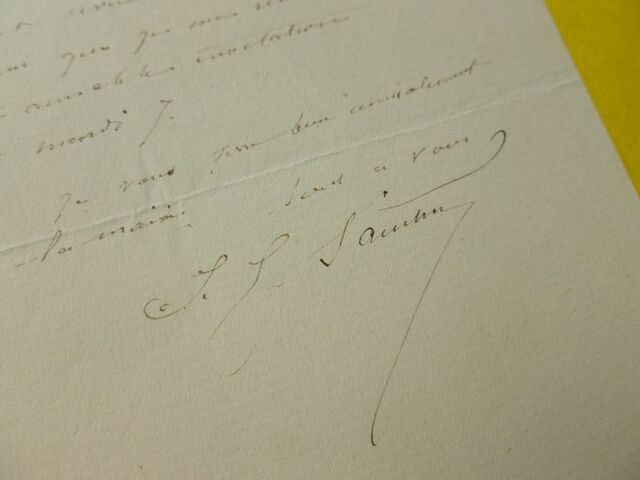 que que mon
aimable invitation
mardi 7.
Je vous serre bien cordialement
la main. Tout à vous
J. J. Saintin